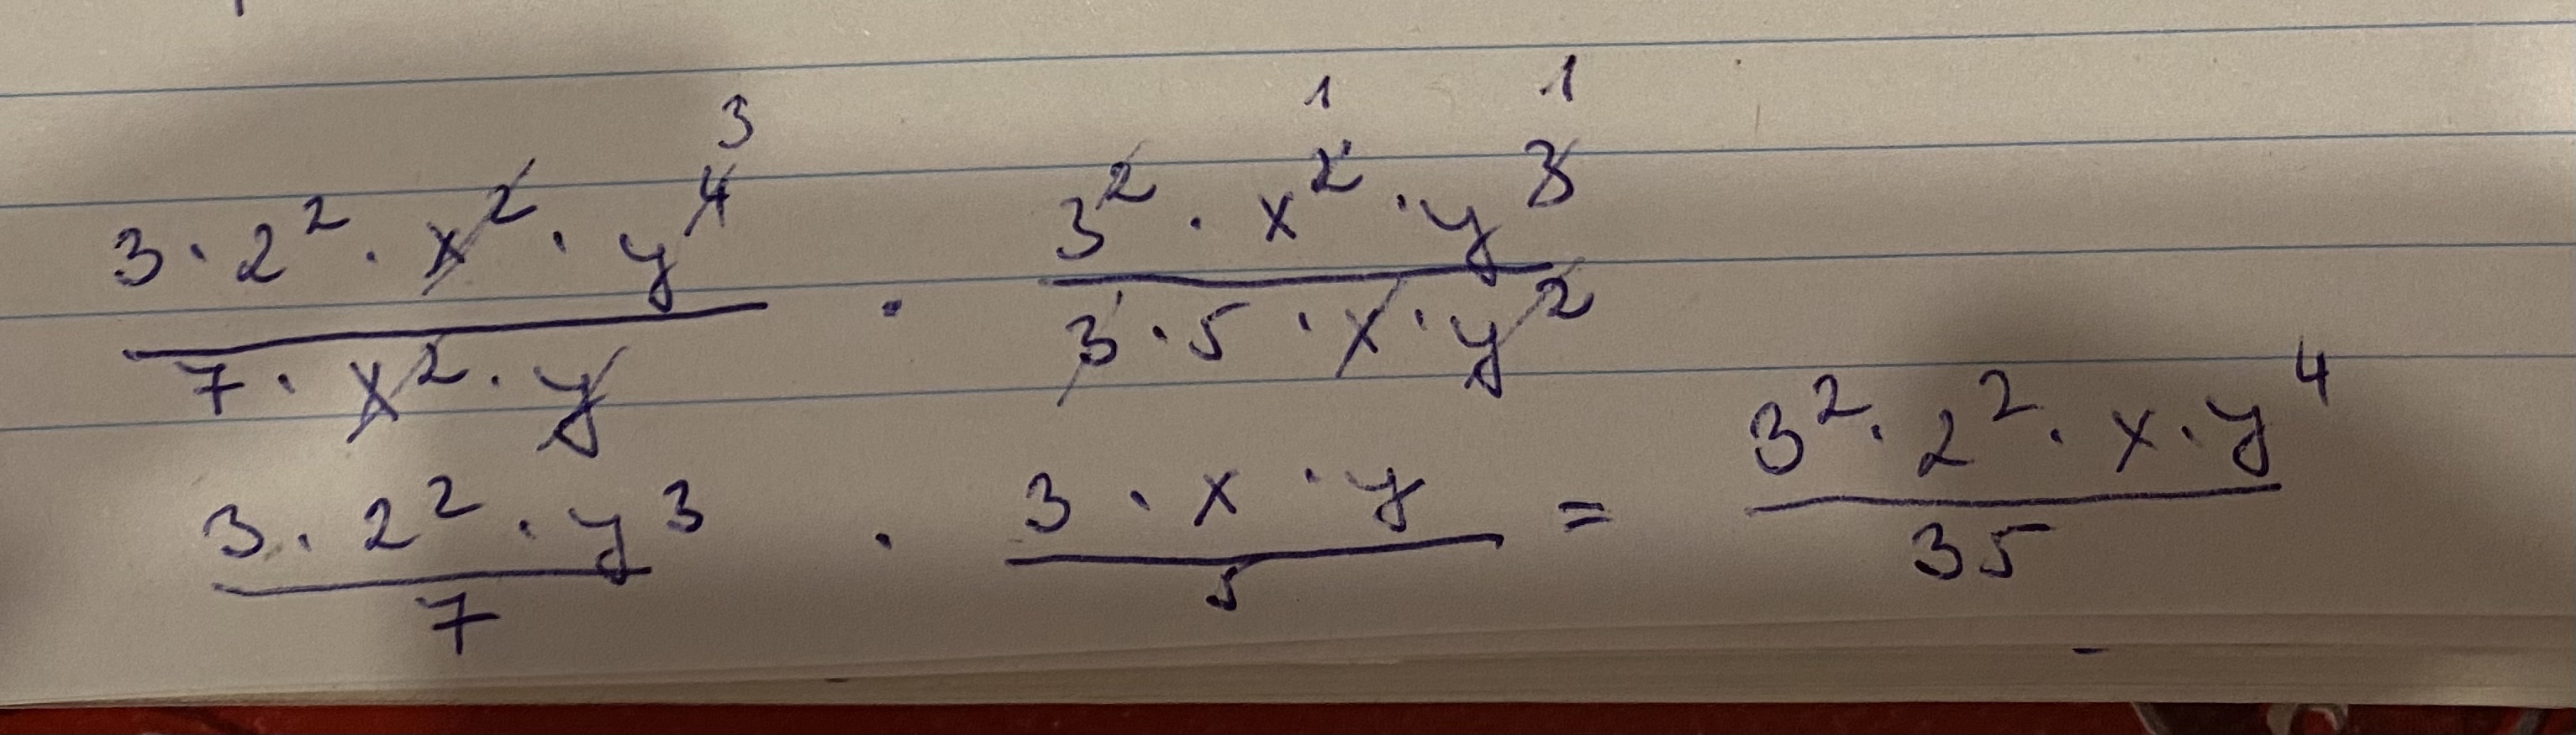 \frac{3 \cdot 2^2 \cdot \cancel{x^2} \cdot y^{\cancel{4} 3}}{7 \cdot \cancel{x^2} \cdot \cancel{y}} \cdot \frac{3^{\cancel{2}} \cdot x^{\cancel{2} 1} \cdot y^{\cancel{3} 1}}{\cancel{3} \cdot 5 \cdot \cancel{x} \cdot \cancel{y^2}}
\frac{3 \cdot 2^2 \cdot y^3}{7} \cdot \frac{3 \cdot x \cdot y}{5} = \frac{3^2 \cdot 2^2 \cdot x \cdot y^4}{35}